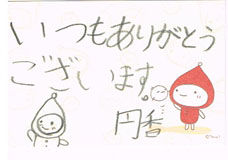 いつもありがとう
ございます。
円香